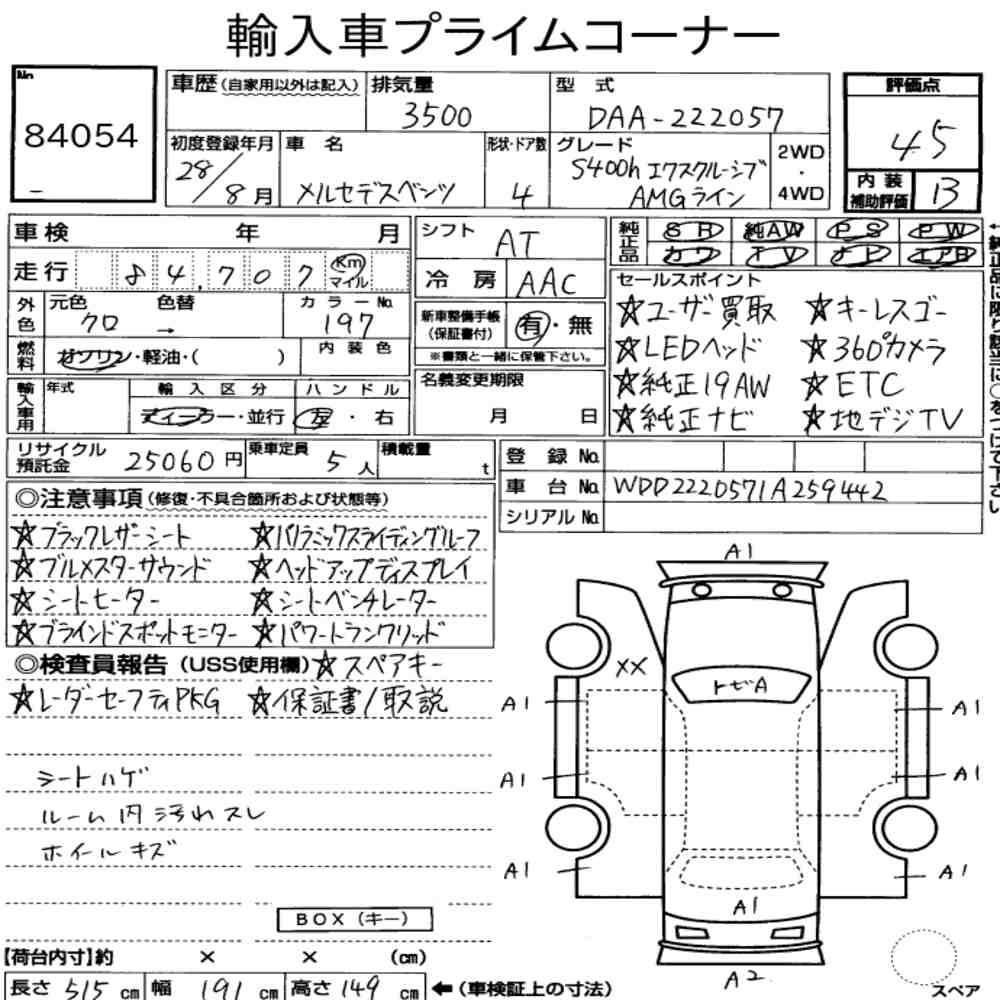 輸入車プライムコーナー
No.
84054
車歴(自家用以外は記入)
排気量
3500
型 式
DAA-222057
初度登録年月
28/8月
車 名
メルセデスベンツ
形状・ドア数
4
グレード
S400h エクスクルーシブ
AMGライン
2WD
・
4WD
評価点
4.5
内 装
補助評価
B
車 検 年 月
走 行 84,707 Km マイル
シフト
AT
冷 房
AAC
純正品
SR 純AW PS PW
カワ TV ナビ エアB
外色
元色 クロ
色替 →
カラーNo.
197
燃料
ガソリン・軽油・( )
内 装 色
新車整備手帳
(保証書付)
有・無
※書類と一緒に保管下さい。
輸入車用
年式
輸 入 区 分
ディーラー・並行
ハ ン ド ル
左 ・ 右
名義変更期限
月 日
セールスポイント
☆ユーザー買取 ☆キーレスゴー
☆LEDヘッド ☆360°カメラ
☆純正19AW ☆ETC
☆純正ナビ ☆地デジTV
リサイクル
預託金
25060円
乗車定員
5人
積載量
t
登 録 No.
車 台 No. WDD2220571A259442
シリアル No.
◎注意事項(修復・不具合箇所および状態等)
☆ブラックレザーシート ☆パノラミックスライディングルーフ
☆ブルメスターサウンド ☆ヘッドアップディスプレイ
☆シートヒーター ☆シートベンチレーター
☆ブラインドスポットモニター ☆パワートランクリッド
◎検査員報告(USS使用欄)☆スペアキー
☆レーダーセーフティPKG ☆保証書/取説
シートハゲ
ルーム内汚れスレ
ホイールキズ
BOX(キー)
A1
XX
トビA
A1 A1
A1 A1
A1 A1
A1
A2
スペア
【荷台内寸】約 × × (cm)
長さ 515 cm 幅 191 cm 高さ 149 cm ←(車検証上の寸法)